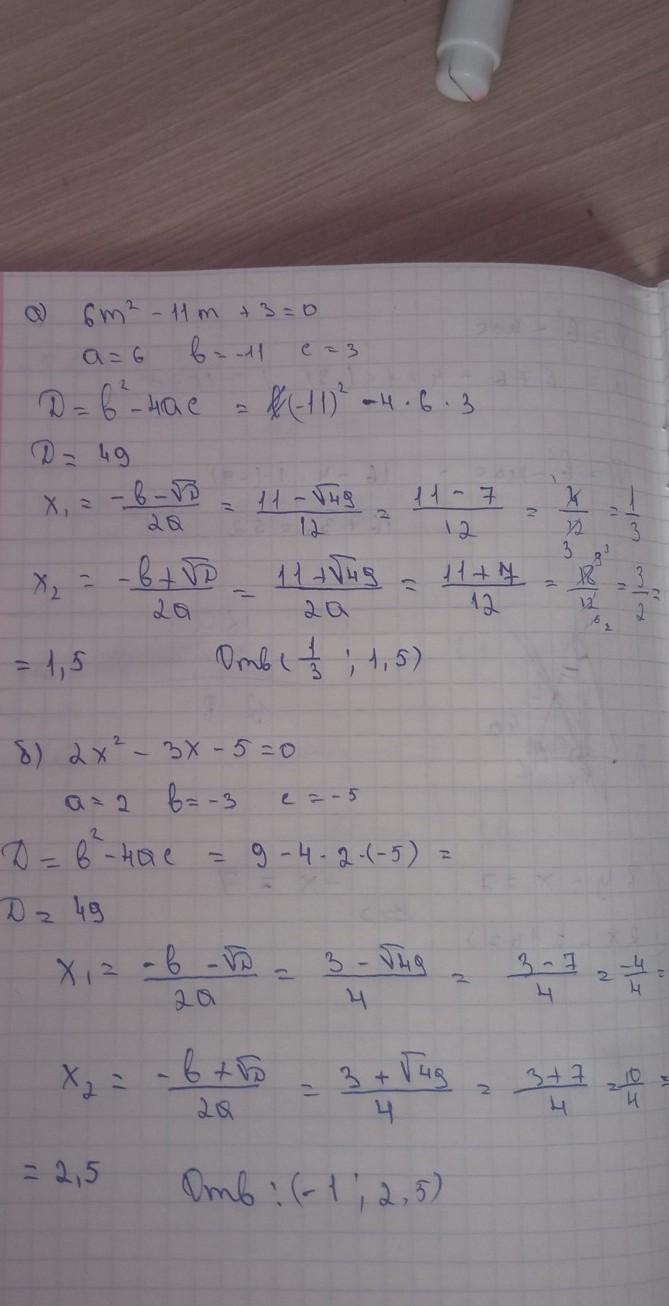 а) 6m² - 11m + 3 = 0
a = 6 b = -11 c = 3
D = b² - 4ac = (-11)² - 4 · 6 · 3
D = 49
x₁ = (-b - √D)/2a = (11 - √49)/12 = (11 - 7)/12 = 4/12 = 1/3
x₂ = (-b + √D)/2a = (11 + √49)/2a = (11 + 7)/12 = 18/12 = 3/2 =
= 1,5 Отв ( 1/3 ; 1,5)
б) 2x² - 3x - 5 = 0
a = 2 b = -3 c = -5
D = b² - 4ac = 9 - 4 · 2 · (-5) =
D = 49
x₁ = (-b - √D)/2a = (3 - √49)/4 = (3 - 7)/4 = -4/4 =
x₂ = (-b + √D)/2a = (3 + √49)/4 = (3 + 7)/4 = 10/4 =
= 2,5 Отв : (-1 ; 2,5)